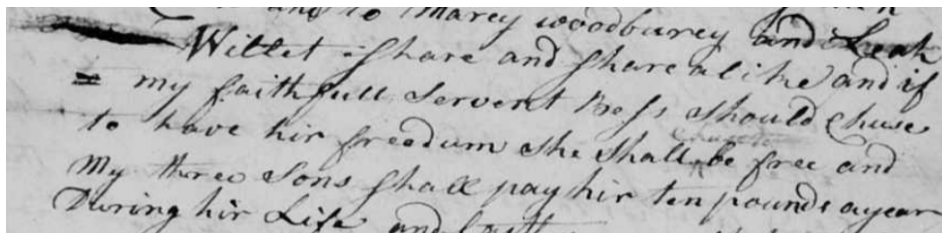 and to Marey woodburey and Leah
Willet share and share alike and if
my faithfull Servent Bess should chuse
to have hir freedum she shall be free and
My three Sons shall pay hir ten pounds a year
During hir Life and